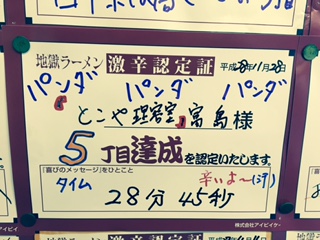 地獄ラーメン 激辛認定証 平成28年11月28日
パンダ パンダ パンダ
とこや 理容室 富島様
5丁目達成を認定いたします
「喜びのメッセージ」をひとこと
辛いよ〜(汗)
タイム
28分45秒
株式会社アイビイケー